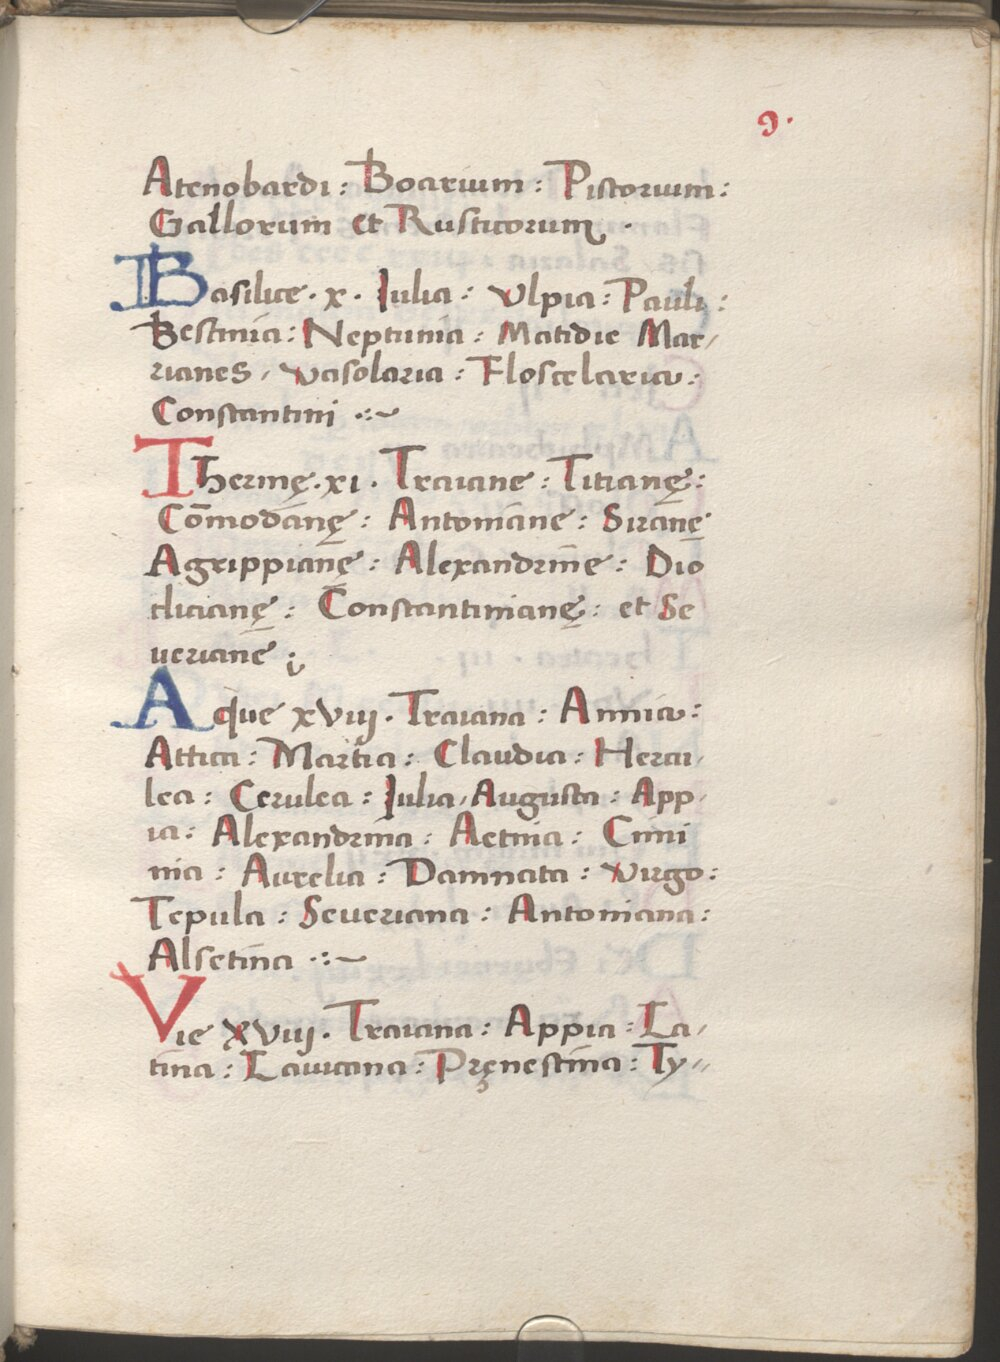 9.
Atenobardi : Boarium : Pistorium :
Gallorum et Rusticorum .
Basilice . x . Iulia : Vlpia : Pauli :
Bestinia : Neptunia : Matidie Mar,
rianes , vasolaria : Floscelaria :
Constantini .:~
Thermę . xi . Traiane : Titianę :
Cōmodanę : Antoniane : Siranę
Agrippianę : Alexandrine : Dio
clicianę : Constantinianę : et Se
ueriane ;
Aque xviij . Traiana : Annia :
Attica : Martia : Claudia : Hercu,
lea : Cerulea : Iulia , Augusta : App,
ia : Alexandrina : Aetnia : Cimi
nia : Aurelia : Damnata : Virgo :
Tepula : Seueriana : Antoniana :
Alsetina .:~
Vie xviij . Traiana : Appia : La,
tina : Lauicana : Pręnestina : Ty,,